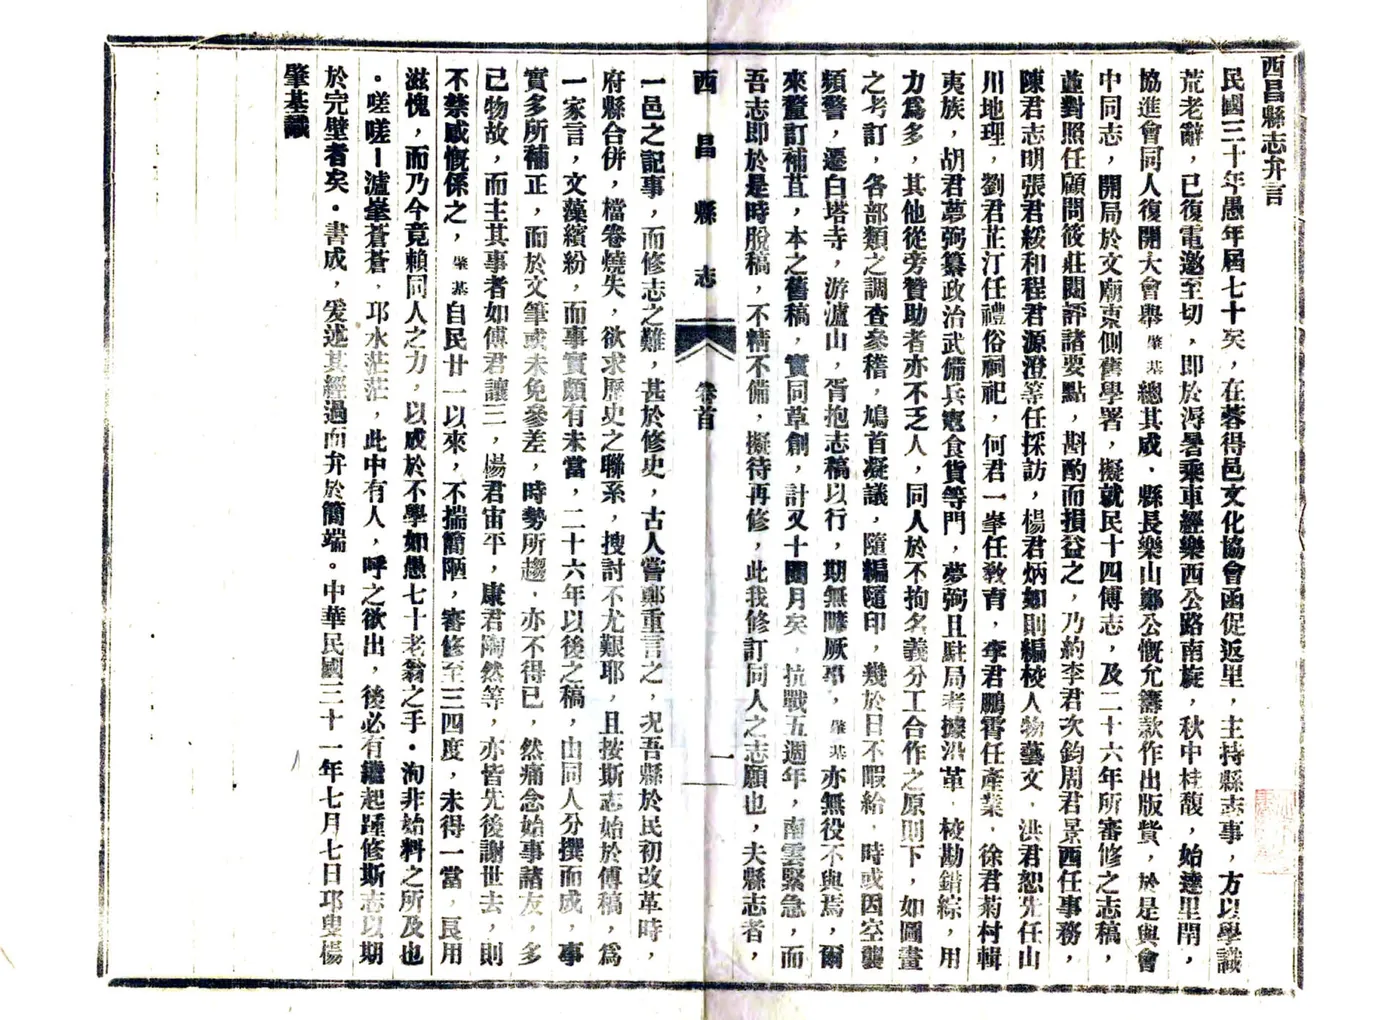 西昌縣志弁言
民國三十年愚年屆七十矣，在蓉得邑文化協會函促返里，主持縣志事，方以學識
荒老辭，已復電邀至切，即於溽暑乘車經樂西公路南旋，秋中桂馥，始達里閈，
協進會同人復開大會舉肇基總其成．縣長樂山鄭公慨允籌款作出版貲，於是與會
中同志，開局於文廟東側舊學署，擬就民十四傅志，及二十六年所審修之志稿，
並對照任顧問筱莊閱評諸要點，斟酌而損益之，乃約李君次鈞周君景西任事務，
陳君志明張君綏和程君源澄等任採訪，楊君炳如則編校人物藝文．洪君恕先任山
川地理，劉君芷汀任禮俗祠祀，何君一峯任教育，李君鵬霄任產業．徐君菊村輯
夷族，胡君夢弼纂政治武備兵寇食貨等門，夢弼且駐局考據沿革．校勘錯綜，用
力爲多，其他從旁贊助者亦不乏人，同人於不拘名義分工合作之原則下，如圖畫
之考訂，各部類之調查參稽，鳩首凝議，隨編隨印，幾於日不暇給．時或因空襲
頻警，遷白塔寺，游瀘山，胥抱志稿以行，期無隳厥事，肇基亦無役不與焉，爾
來釐訂補苴，本之舊稿，實同草創，計又十閱月矣．抗戰五週年，南雲緊急，而
吾志即於是時脫稿，不精不備，擬待再修，此我修訂同人之志願也，夫縣志者，
西昌縣志 卷首 一
一邑之記事，而修志之難，甚於修史，古人嘗鄭重言之，況吾縣於民初改革時，
府縣合併，檔卷燒失，欲求歷史之聯系，搜討不尤艱耶，且按斯志始於傅稿，爲
一家言，文藻繽紛，而事實頗有未當，二十六年以後之稿，由同人分撰而成，事
實多所補正，而於文筆或未免參差，時勢所趨，亦不得已，然痛念始事諸友，多
已物故，而主其事者如傅君讓三，楊君宙平，康君陶然等，亦皆先後謝世去，則
不禁感慨係之，肇基自民廿一以來，不揣簡陋，審修至三四度，未得一當，良用
滋愧，而乃今竟賴同人之力，以成於不學如愚七十老翁之手．洵非始料之所及也
．嗟嗟！瀘峯蒼蒼．邛水茫茫，此中有人，呼之欲出，後必有繼起踵修斯志以期
於完璧者矣．書成，爰述其經過而弁於簡端。中華民國三十一年七月七日邛叟楊
肇基識